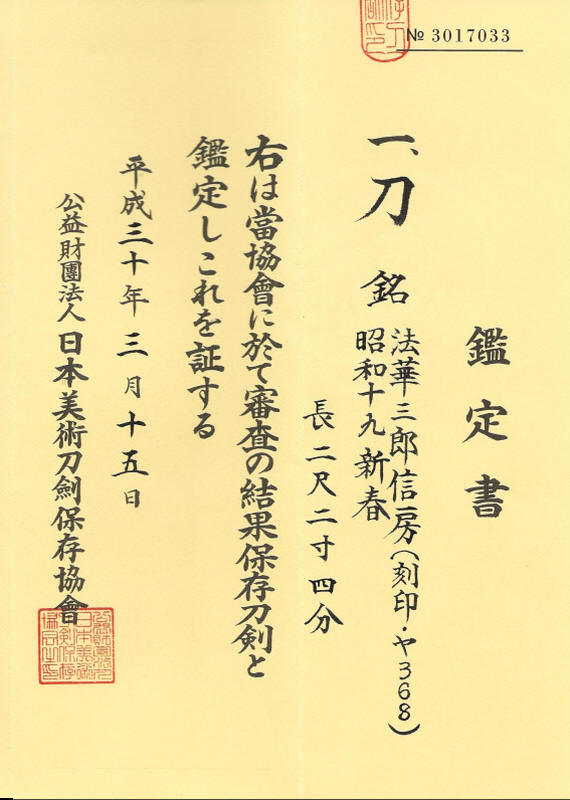 № 3017033
鑑定書
一、刀 銘 法華三郎信房(刻印・ヤ368)
昭和十九新春
長二尺二寸四分
右は當協會に於て審査の結果保存刀剣と
鑑定しこれを証する
平成三十年三月十五日
公益財團法人日本美術刀劍保存協會